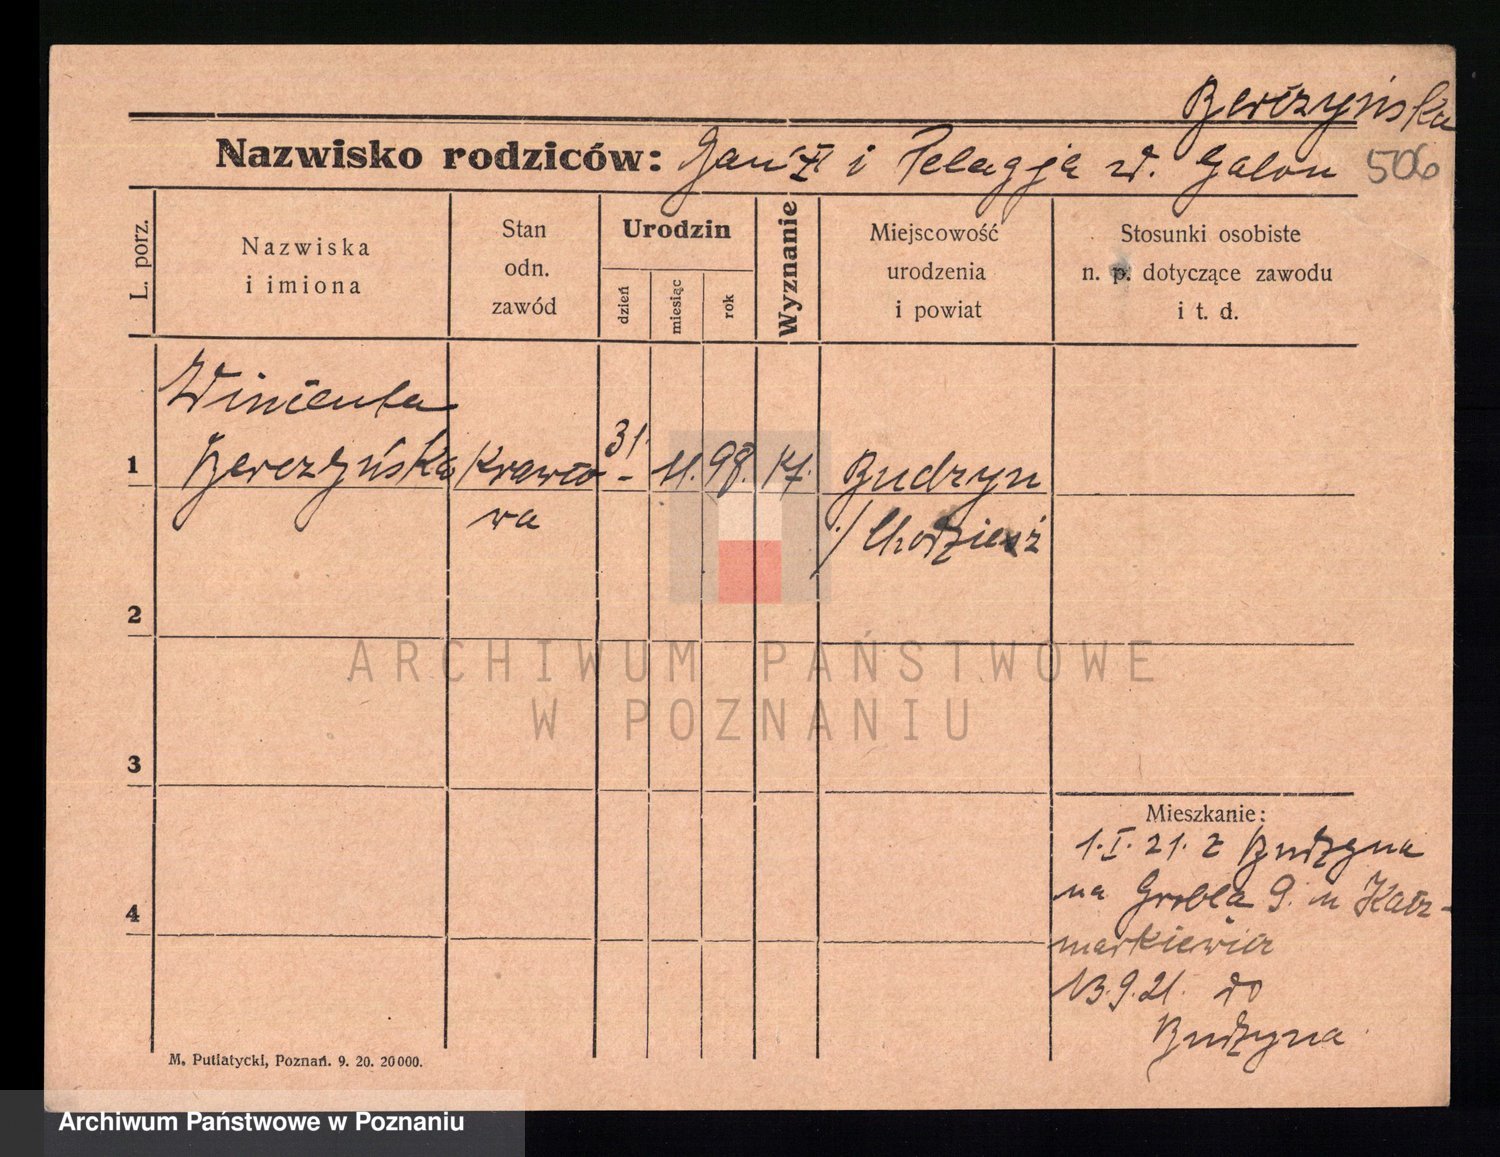 Berczyńska
Nazwisko rodziców: Jan i Pelagja z d. Galon 506
L. porz.
Nazwiska
i imiona
Stan
odn.
zawód
Urodzin
dzień
miesiąc
rok
Wyznanie
Miejscowość
urodzenia
i powiat
Stosunki osobiste
n. p. dotyczące zawodu
i t. d.
1
Wincenta
Berczyńska
Krawco
wa
31.
11. 98. kt.
Budzyn
/Chodzież
2
3
4
Mieszkanie:
1.I.21. z Budzyna
na Grobla 9. u
markiewicz
13.9.21. do
Budzyna
M. Putiatycki, Poznań. 9. 20. 20000.
ARCHIWUM PAŃSTWOWE
W POZNANIU
Archiwum Państwowe w Poznaniu